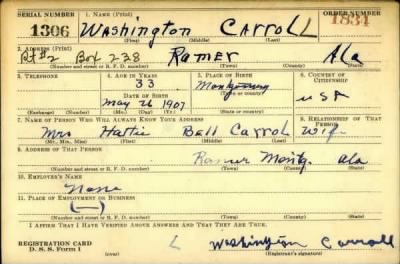 SERIAL NUMBER 1. NAME (Print) ORDER NUMBER
1306 Washington Carroll 1834
(First) (Middle) (Last)
2. ADDRESS (Print)
Rt #2 Box 238 Ramer Ala
(Number and street or R. F. D. number) (Town) (County) (State)
3. TELEPHONE 4. AGE IN YEARS 5. PLACE OF BIRTH 6. COUNTRY OF CITIZENSHIP
33 Montgomery
DATE OF BIRTH (Town or county) USA
May 26 1907
(Exchange) (Number) (Mo.) (Day) (Yr.) (State or country)
7. NAME OF PERSON WHO WILL ALWAYS KNOW YOUR ADDRESS 8. RELATIONSHIP OF THAT PERSON
Mrs Hattie Bell Carrol Wife
(Mr., Mrs., Miss) (First) (Middle) (Last)
9. ADDRESS OF THAT PERSON
Ramer Montg. Ala
(Number and street or R. F. D. number) (Town) (County) (State)
10. EMPLOYER'S NAME
None
11. PLACE OF EMPLOYMENT OR BUSINESS
(—)
(Number and street or R. F. D. number) (Town) (County) (State)
I AFFIRM THAT I HAVE VERIFIED ABOVE ANSWERS AND THAT THEY ARE TRUE.
REGISTRATION CARD
D. S. S. Form 1 Washington Carroll
(Registrant's signature)